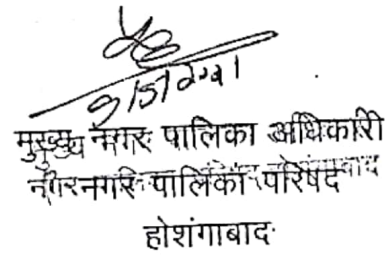 9/5/2021
मुख्य नगर पालिका अधिकारी
नगर पालिका परिषद
होशंगाबाद